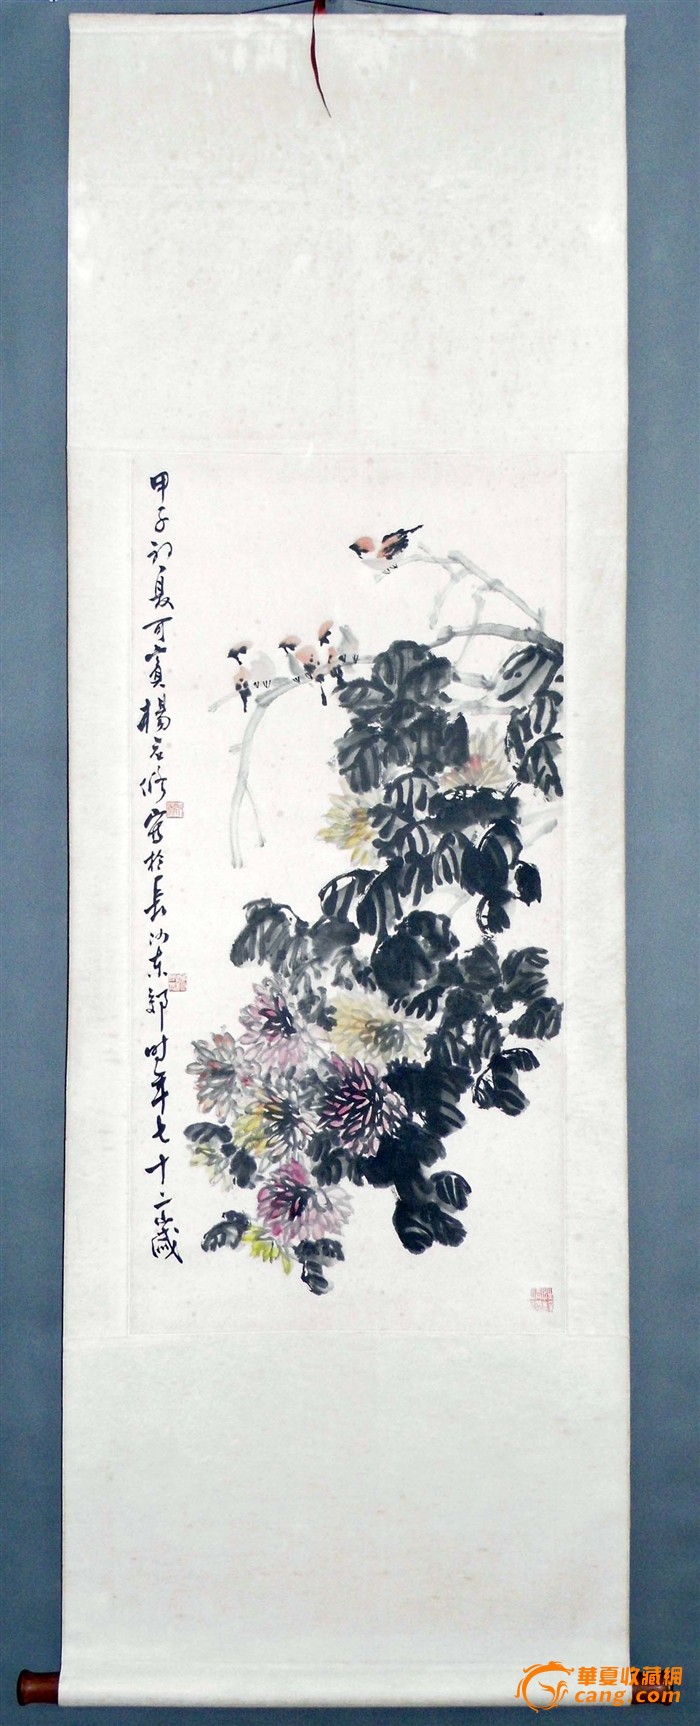 甲子初夏可賓楊應修寫於長沙東郊時年七十二歲
華夏收藏網
cang.com